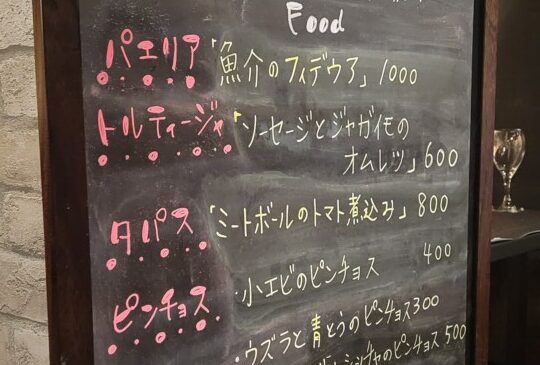 Food
パエリア「魚介のフィデウア」1000
トルティージャ「ソーセージとジャガイモの
オムレツ」600
タパス「ミートボールのトマト煮込み」800
ピンチョス ・小エビのピンチョス 400
・ウズラと青とうのピンチョス300
のピンチョス 500